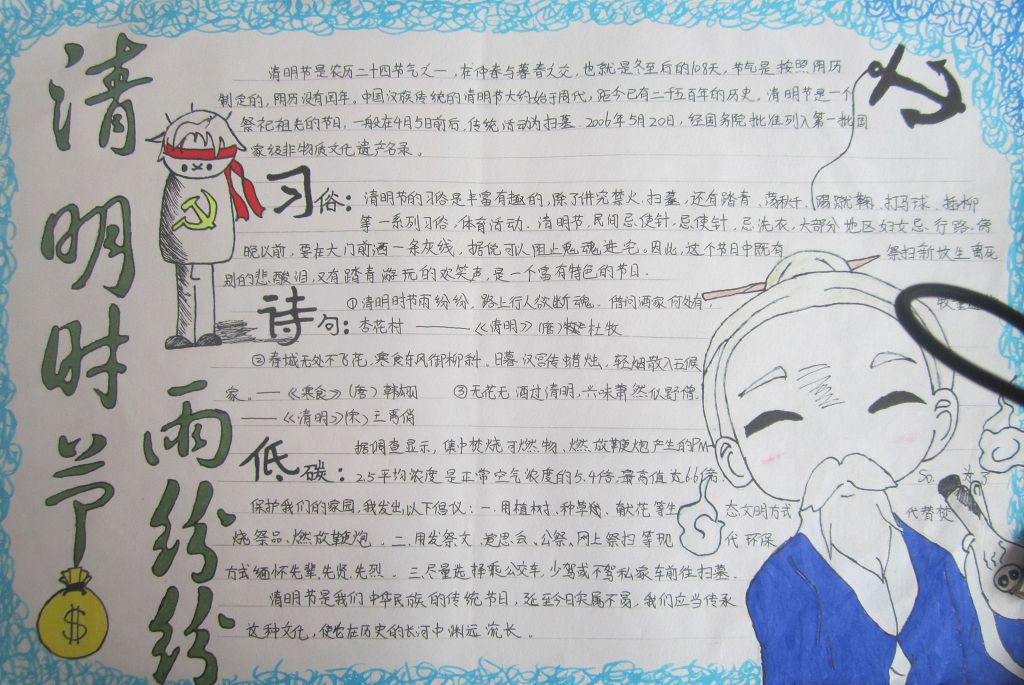 清明时节
雨纷纷
清明节是农历二十四节气之一，在仲春与暮春之交，也就是冬至后的108天，节气是按照阳历
制定的，阴历没有闰年。中国汉族传统的清明节大约始于周代，距今已有二千五百年的历史。清明节是一个
祭祀祖先的节日，一般在4月5日前后，传统活动为扫墓。2006年5月20日，经国务院批准列入第一批国
家级非物质文化遗产名录。
习俗：清明节的习俗是丰富有趣的，除了讲究禁火、扫墓，还有踏青、荡秋千、踢蹴鞠、打马球、插柳
等一系列习俗，体育活动。清明节，民间忌使针，忌使针，忌洗衣，大部分地区妇女忌行路。傍
晚以前，要在大门前洒一条灰线，据说可以阻止鬼魂进宅。因此，这个节日中既有 祭扫新坟生离死
别的悲酸泪，又有踏青游玩的欢笑声，是一个富有特色的节日。
诗句：①清明时节雨纷纷，路上行人欲断魂。借问酒家何处有， 牧童
杏花村 ——《清明》（唐）杜牧
②春城无处不飞花，寒食东风御柳斜。日暮汉宫传蜡烛，轻烟散入五候
家。——《寒食》（唐）韩翃 ③无花无酒过清明，兴味萧然似野僧。
——《清明》（宋）王禹偁
低碳：据调查显示，集中焚烧可燃物、燃放鞭炮产生的PM
2.5平均浓度是正常空气浓度的5.4倍，最高值达6.61倍 So. 为了
保护我们的家园，我发出以下倡议：一.用植树、种草、献花等生态文明方式代替焚
烧祭品、燃放鞭炮。二.用发祭文、追思会、公祭、网上祭扫等现代环保
方式缅怀先辈、先贤、先烈。三.尽量选择乘公交车，少驾或不驾私家车前往扫墓。
清明节是我们中华民族的传统节日，延至今日实属不易，我们应当传承
这种文化，使它在历史的长河中渊远流长。
$